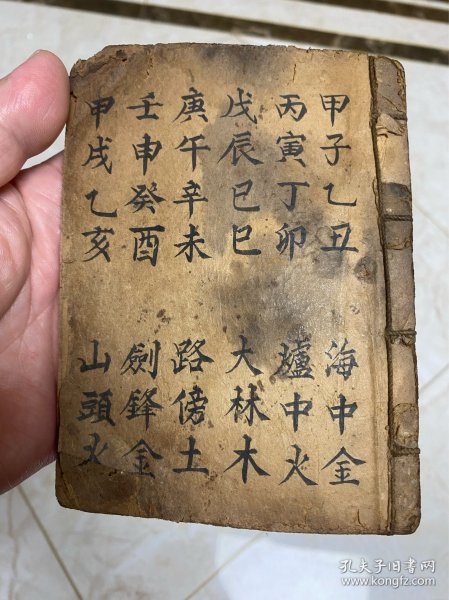 甲子乙丑 海中金
丙寅丁卯 爐中火
戊辰己巳 大林木
庚午辛未 路傍土
壬申癸酉 劍鋒金
甲戌乙亥 山頭火
孔夫子旧书网
www.kongfz.com